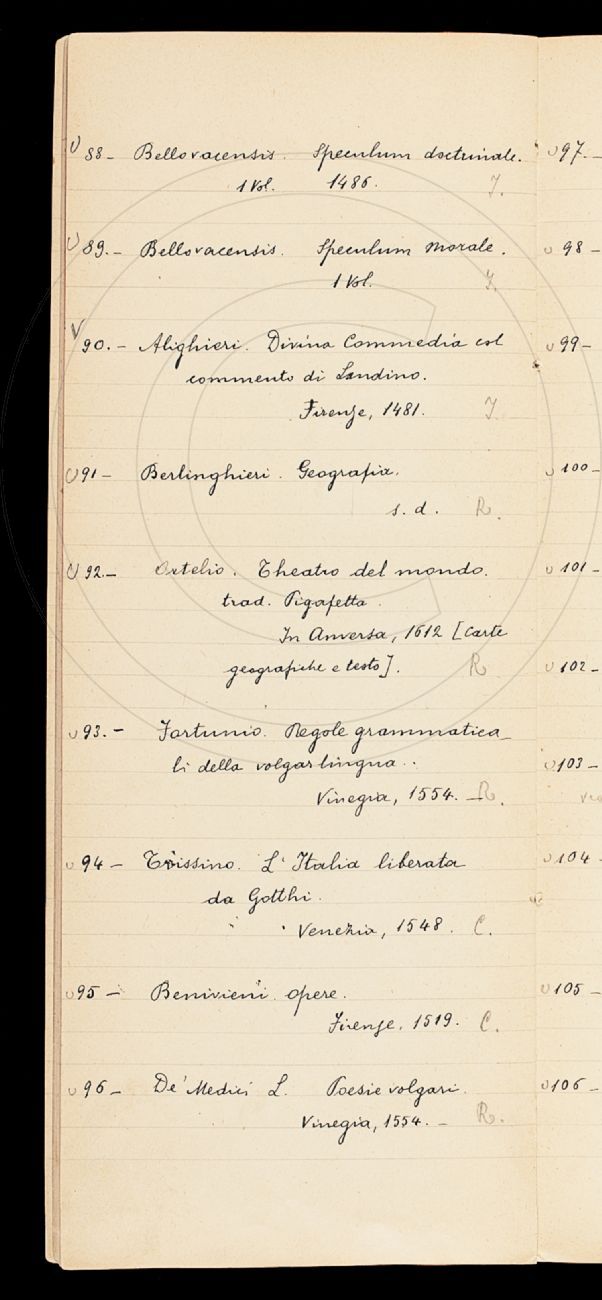 88- Bellovacensis. Speculum doctrinale.
1 Vol. 1486. I.
89.- Bellovacensis. Speculum morale.
1 Vol. I.
90.- Alighieri. Divina Commedia col
commento di Landino.
Firenze, 1481. I.
91- Berlinghieri. Geografia.
s. d. R.
92.- Ortelio. Theatro del mondo.
trad. Pigafetta.
In Anversa, 1612 [carte
geografiche e testo]. R
93.- Fortunio. Regole grammatica-
li della volgar lingua..
Vinegia, 1554. - R.
94- Trissino. L'Italia liberata
da Gotthi.
Venezia, 1548. C.
95- Benivieni. opere.
Firenze, 1519. C.
96- De' Medici L. Poesie volgari.
Vinegia, 1554. - R.
97.-
98-
99-
100-
101-
102-
103-
104-
105-
106-